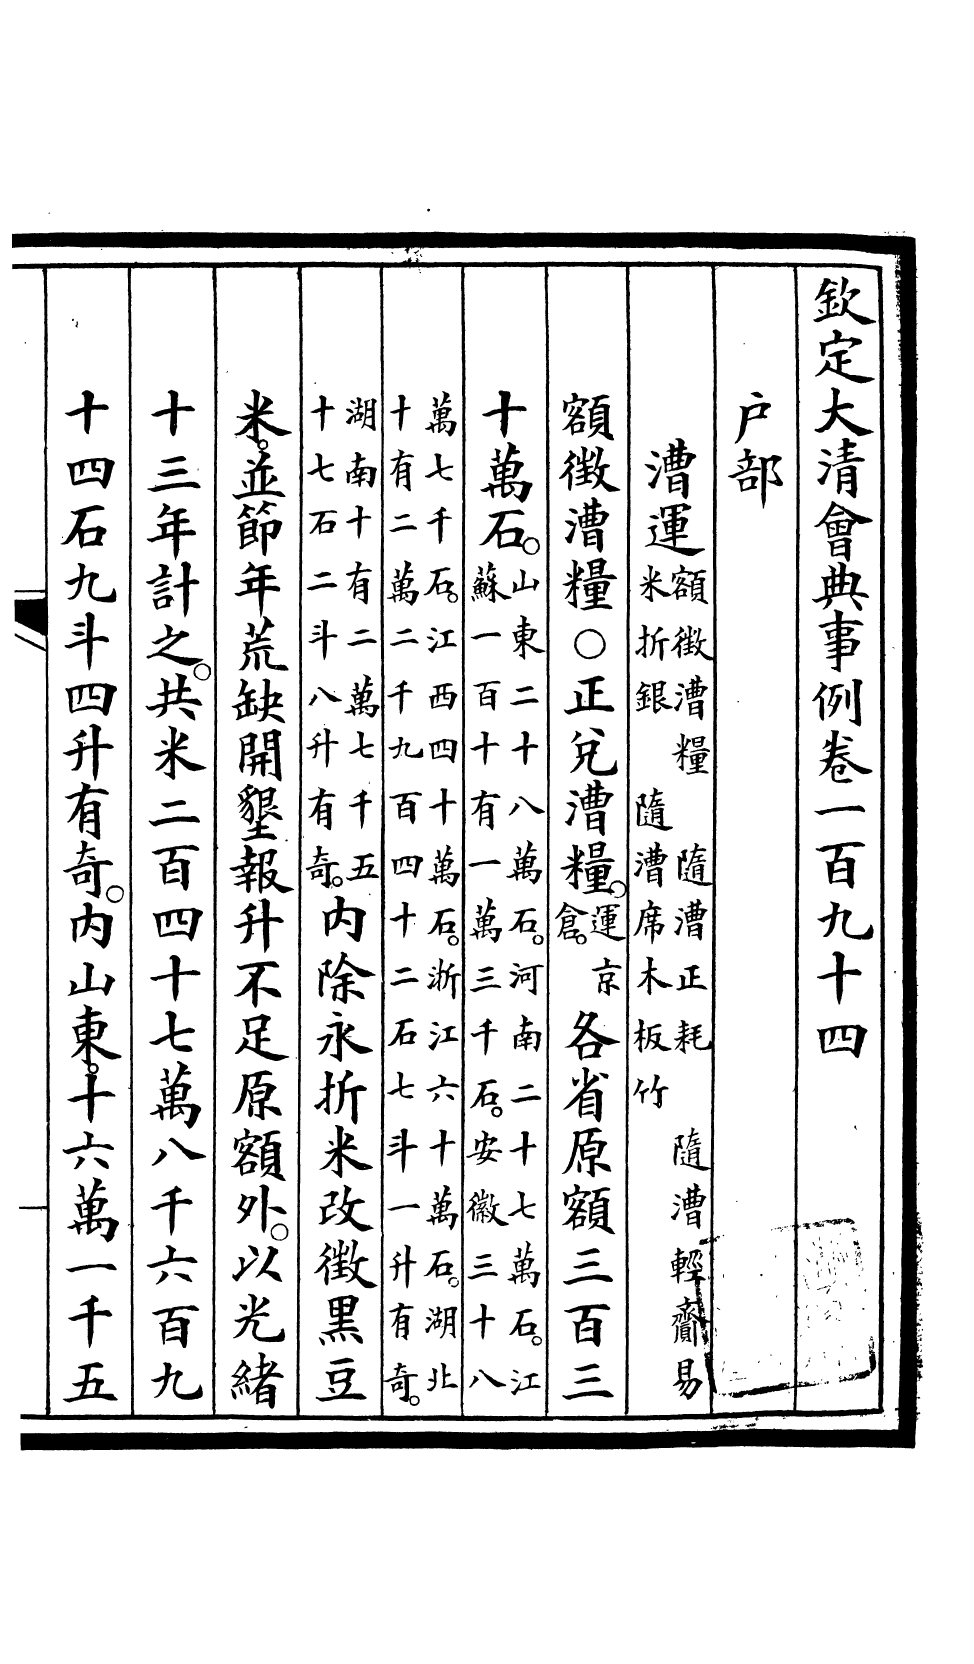 欽定大清會典事例卷一百九十四
户部
漕運額徵漕糧 隨漕正耗 隨漕輕齎易
米折銀 隨漕席木板竹
額徵漕糧○正兌漕糧。運京
倉。各省原額三百三
十萬石。山東二十八萬石。河南二十七萬石。江
蘇一百十有一萬三千石。安徽三十八
萬七千石。江西四十萬石。浙江六十萬石。湖北
十有二萬二千九百四十二石七斗一升有奇。
湖南十有二萬七千五
十七石二斗八升有奇。內除永折米改徵黑豆
米。並節年荒缺開墾報升不足原額外。以光緒
十三年計之。共米二百四十七萬八千六百九
十四石九斗四升有奇。內山東。十六萬一千五